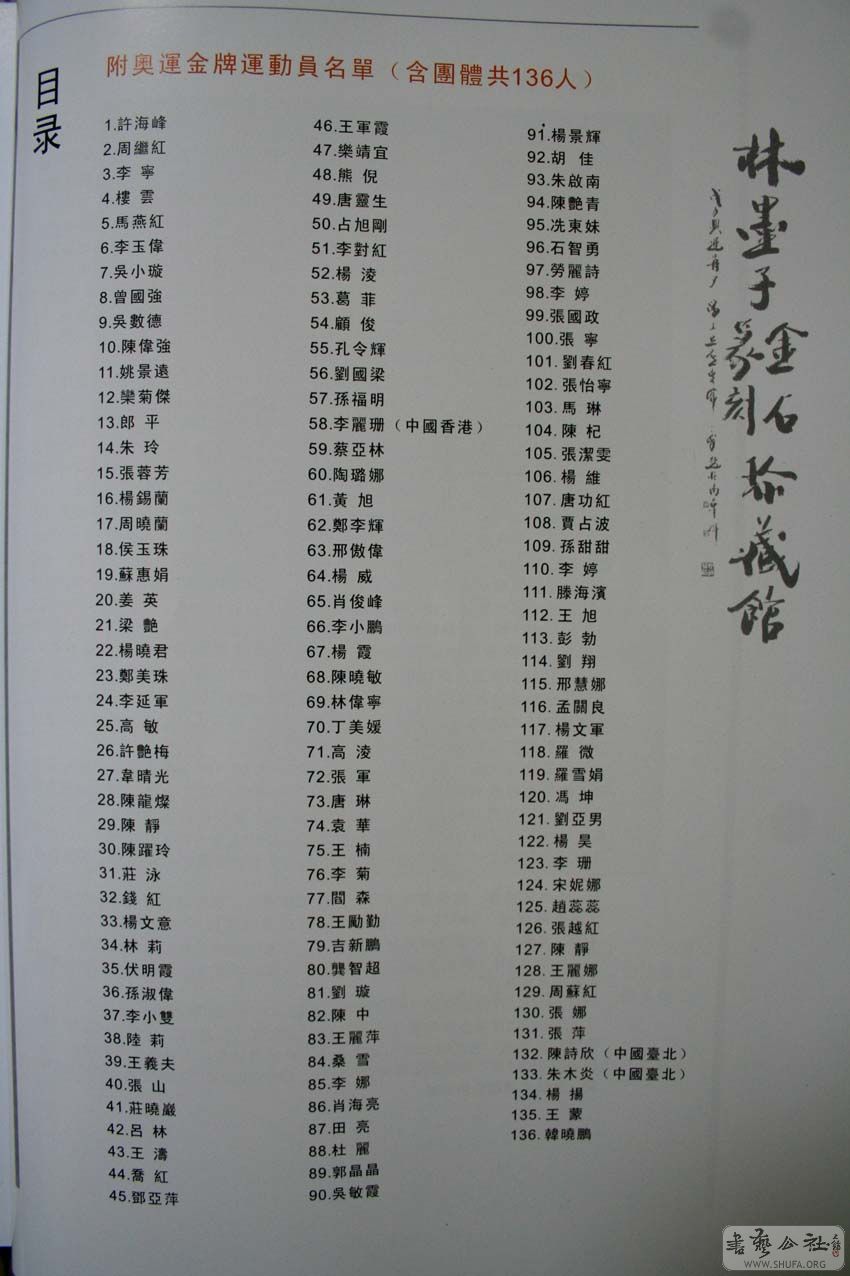 目录
附奧運金牌運動員名單（含團體共136人）
1.許海峰
2.周繼紅
3.李 寧
4.樓 雲
5.馬燕紅
6.李玉偉
7.吳小璇
8.曾國強
9.吳數德
10.陳偉強
11.姚景遠
12.欒菊傑
13.郎 平
14.朱 玲
15.張蓉芳
16.楊錫蘭
17.周曉蘭
18.侯玉珠
19.蘇惠娟
20.姜 英
21.梁 艷
22.楊曉君
23.鄭美珠
24.李延軍
25.高 敏
26.許艷梅
27.韋晴光
28.陳龍燦
29.陳 靜
30.陳躍玲
31.莊 泳
32.錢 紅
33.楊文意
34.林 莉
35.伏明霞
36.孫淑偉
37.李小雙
38.陸 莉
39.王義夫
40.張 山
41.莊曉巖
42.呂 林
43.王 濤
44.喬 紅
45.鄧亞萍
46.王軍霞
47.樂靖宜
48.熊 倪
49.唐靈生
50.占旭剛
51.李對紅
52.楊 淩
53.葛 菲
54.顧 俊
55.孔令輝
56.劉國梁
57.孫福明
58.李麗珊（中國香港）
59.蔡亞林
60.陶璐娜
61.黃 旭
62.鄭李輝
63.邢傲偉
64.楊 威
65.肖俊峰
66.李小鵬
67.楊 霞
68.陳曉敏
69.林偉寧
70.丁美媛
71.高 淩
72.張 軍
73.唐 琳
74.袁 華
75.王 楠
76.李 菊
77.閻 森
78.王勵勤
79.吉新鵬
80.龔智超
81.劉 璇
82.陳 中
83.王麗萍
84.桑 雪
85.李 娜
86.肖海亮
87.田 亮
88.杜 麗
89.郭晶晶
90.吳敏霞
91.楊景輝
92.胡 佳
93.朱啟南
94.陳艷青
95.冼東妹
96.石智勇
97.勞麗詩
98.李 婷
99.張國政
100.張 寧
101.劉春紅
102.張怡寧
103.馬 琳
104.陳 杞
105.張潔雯
106.楊 維
107.唐功紅
108.賈占波
109.孫甜甜
110.李 婷
111.滕海濱
112.王 旭
113.彭 勃
114.劉 翔
115.邢慧娜
116.孟關良
117.楊文軍
118.羅 微
119.羅雪娟
120.馮 坤
121.劉亞男
122.楊 昊
123.李 珊
124.宋妮娜
125.趙蕊蕊
126.張越紅
127.陳 靜
128.王麗娜
129.周蘇紅
130.張 娜
131.張 萍
132.陳詩欣（中國臺北）
133.朱木炎（中國臺北）
134.楊 揚
135.王 蒙
136.韓曉鵬
林墨子金石篆刻珍藏館
書藝公社
WWW.SHUFA.ORG